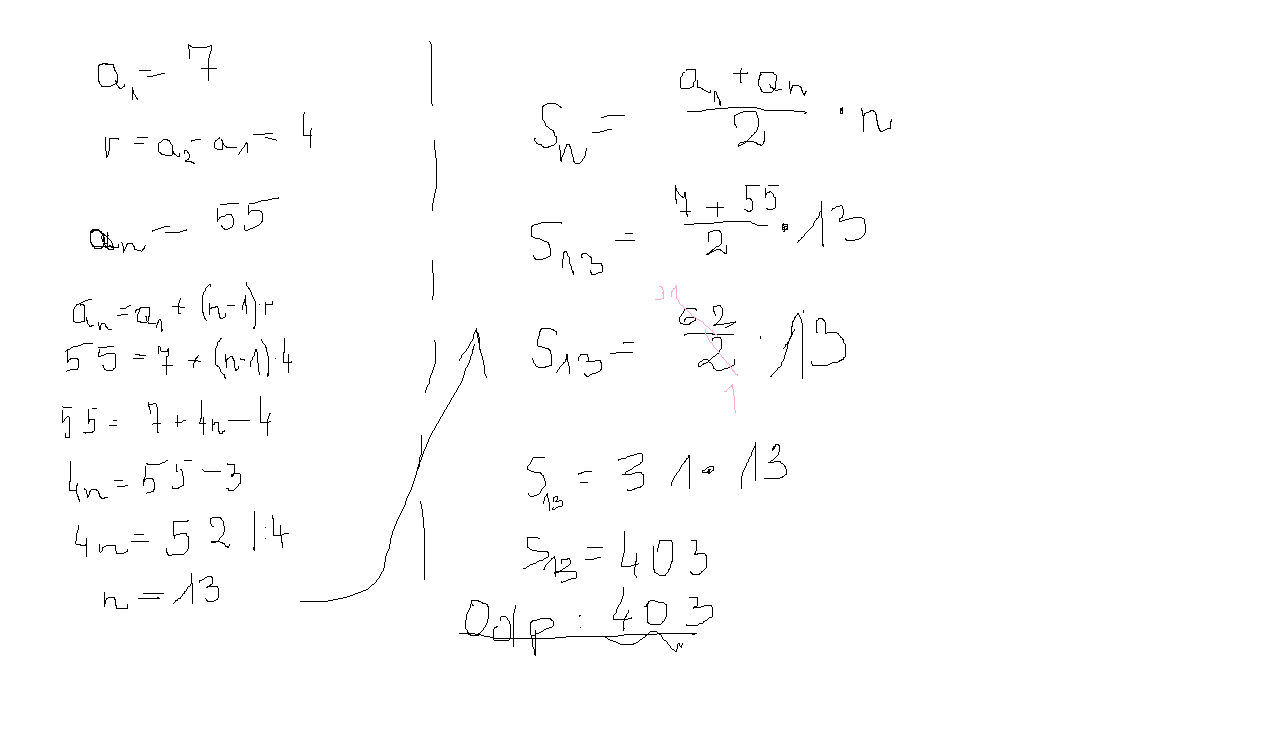 a₁ = 7
r = a₂ - a₁ = 4
aₙ = 55
aₙ = a₁ + (n-1)·r
55 = 7 + (n-1)·4
55 = 7 + 4n - 4
4n = 55 - 3
4n = 52 |:4
n = 13
Sₙ = (a₁ + aₙ)/2 · n
S₁₃ = (7 + 55)/2 · 13
31
S₁₃ = 62/2 · 13
1
S₁₃ = 31 · 13
S₁₃ = 403
Odp: 403